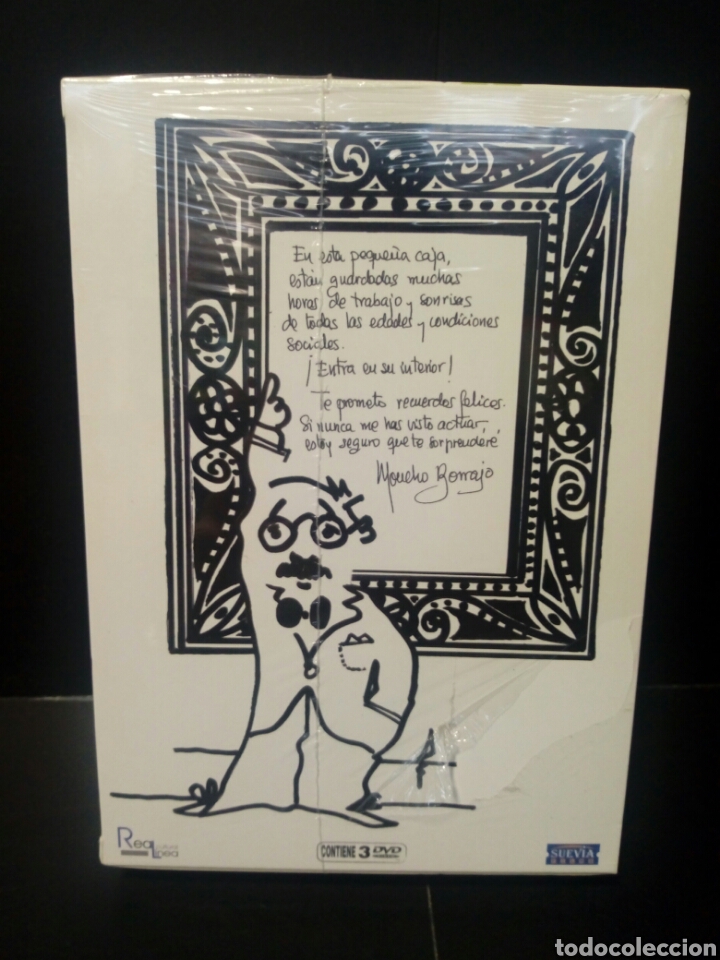 En esta pequeña caja,
están guardadas muchas
horas de trabajo y sonrisas
de todas las edades y condiciones
sociales.
¡Entra en su interior!
Te prometo recuerdos felices.
Si nunca me has visto actuar,
estoy seguro que te sorprenderé
Moncho Borrajo
Real Línea
CONTIENE 3 DVD
SUEVIA
todocoleccion